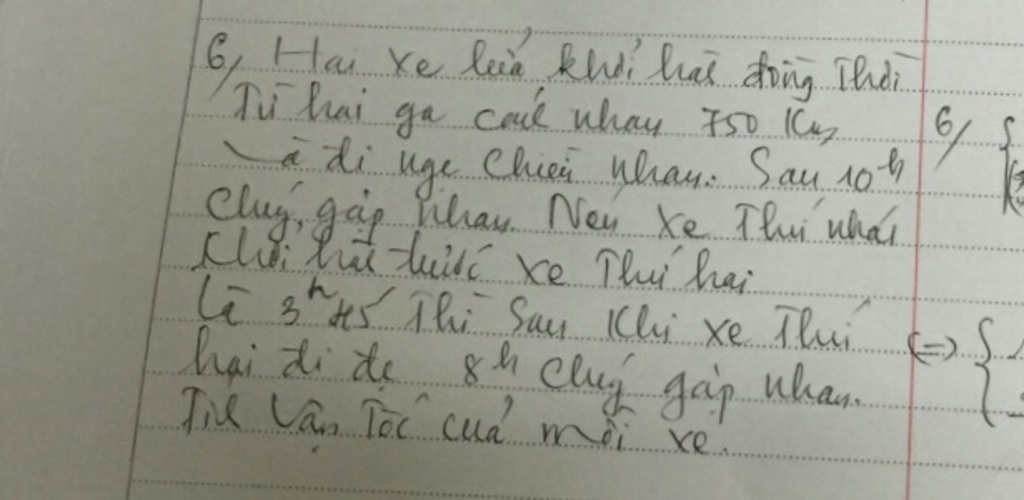 6, Hai xe lửa khởi hàh đồng thời
Từ hai ga cách nhau 750 Km 6/ {
Và đi ngc chiều nhau. Sau 10h
Chúg gặp nhau. Nếu xe Thứ nhất
Khởi hàh trước xe Thứ hai
là 3h45 Thì Sau Khi xe Thứ <=> {
hai đi đc 8h Chúg gặp nhau.
Tìh Vận Tốc của mỗi xe.